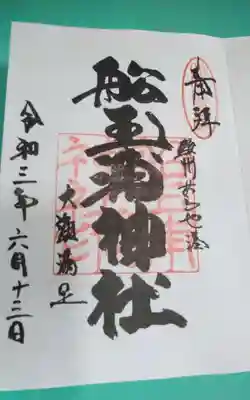 奉拝
船玉浦神社
大願満足
令和三年六月十三日